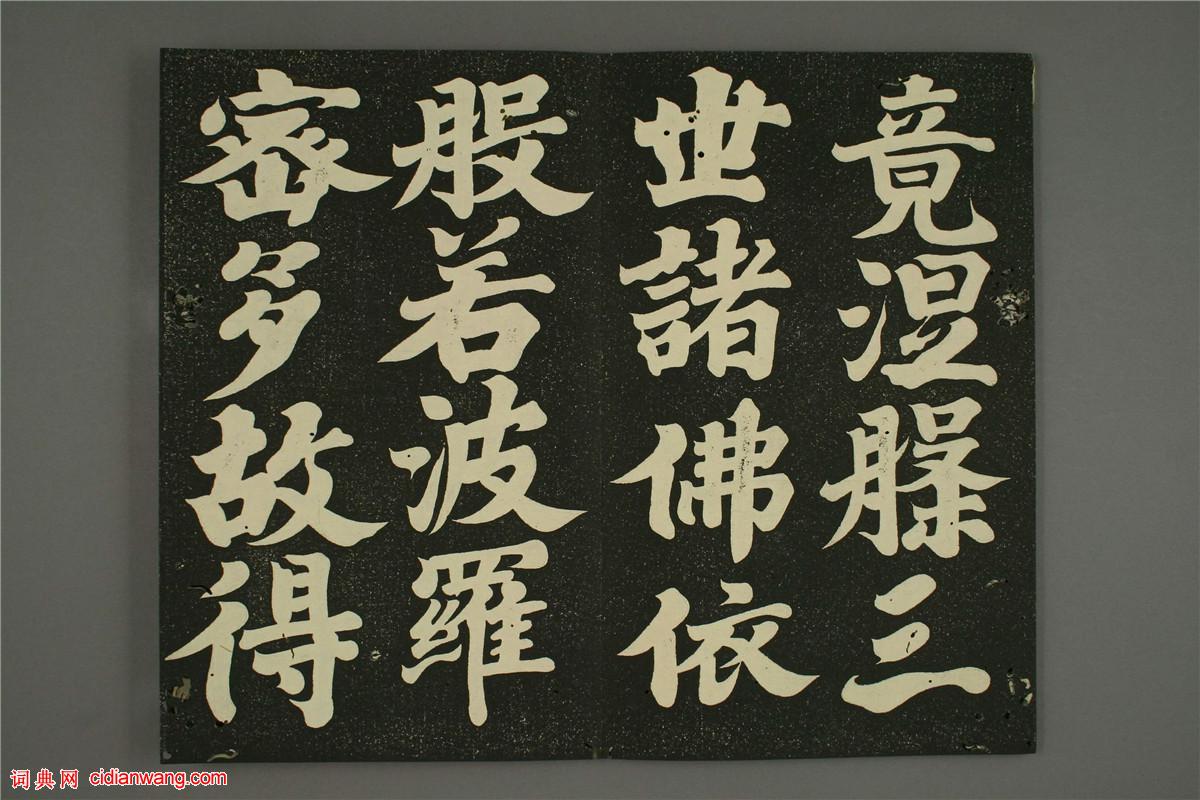 竟涅槃三
世諸佛依
般若波羅
密多故得
词典网 cidianwang.com